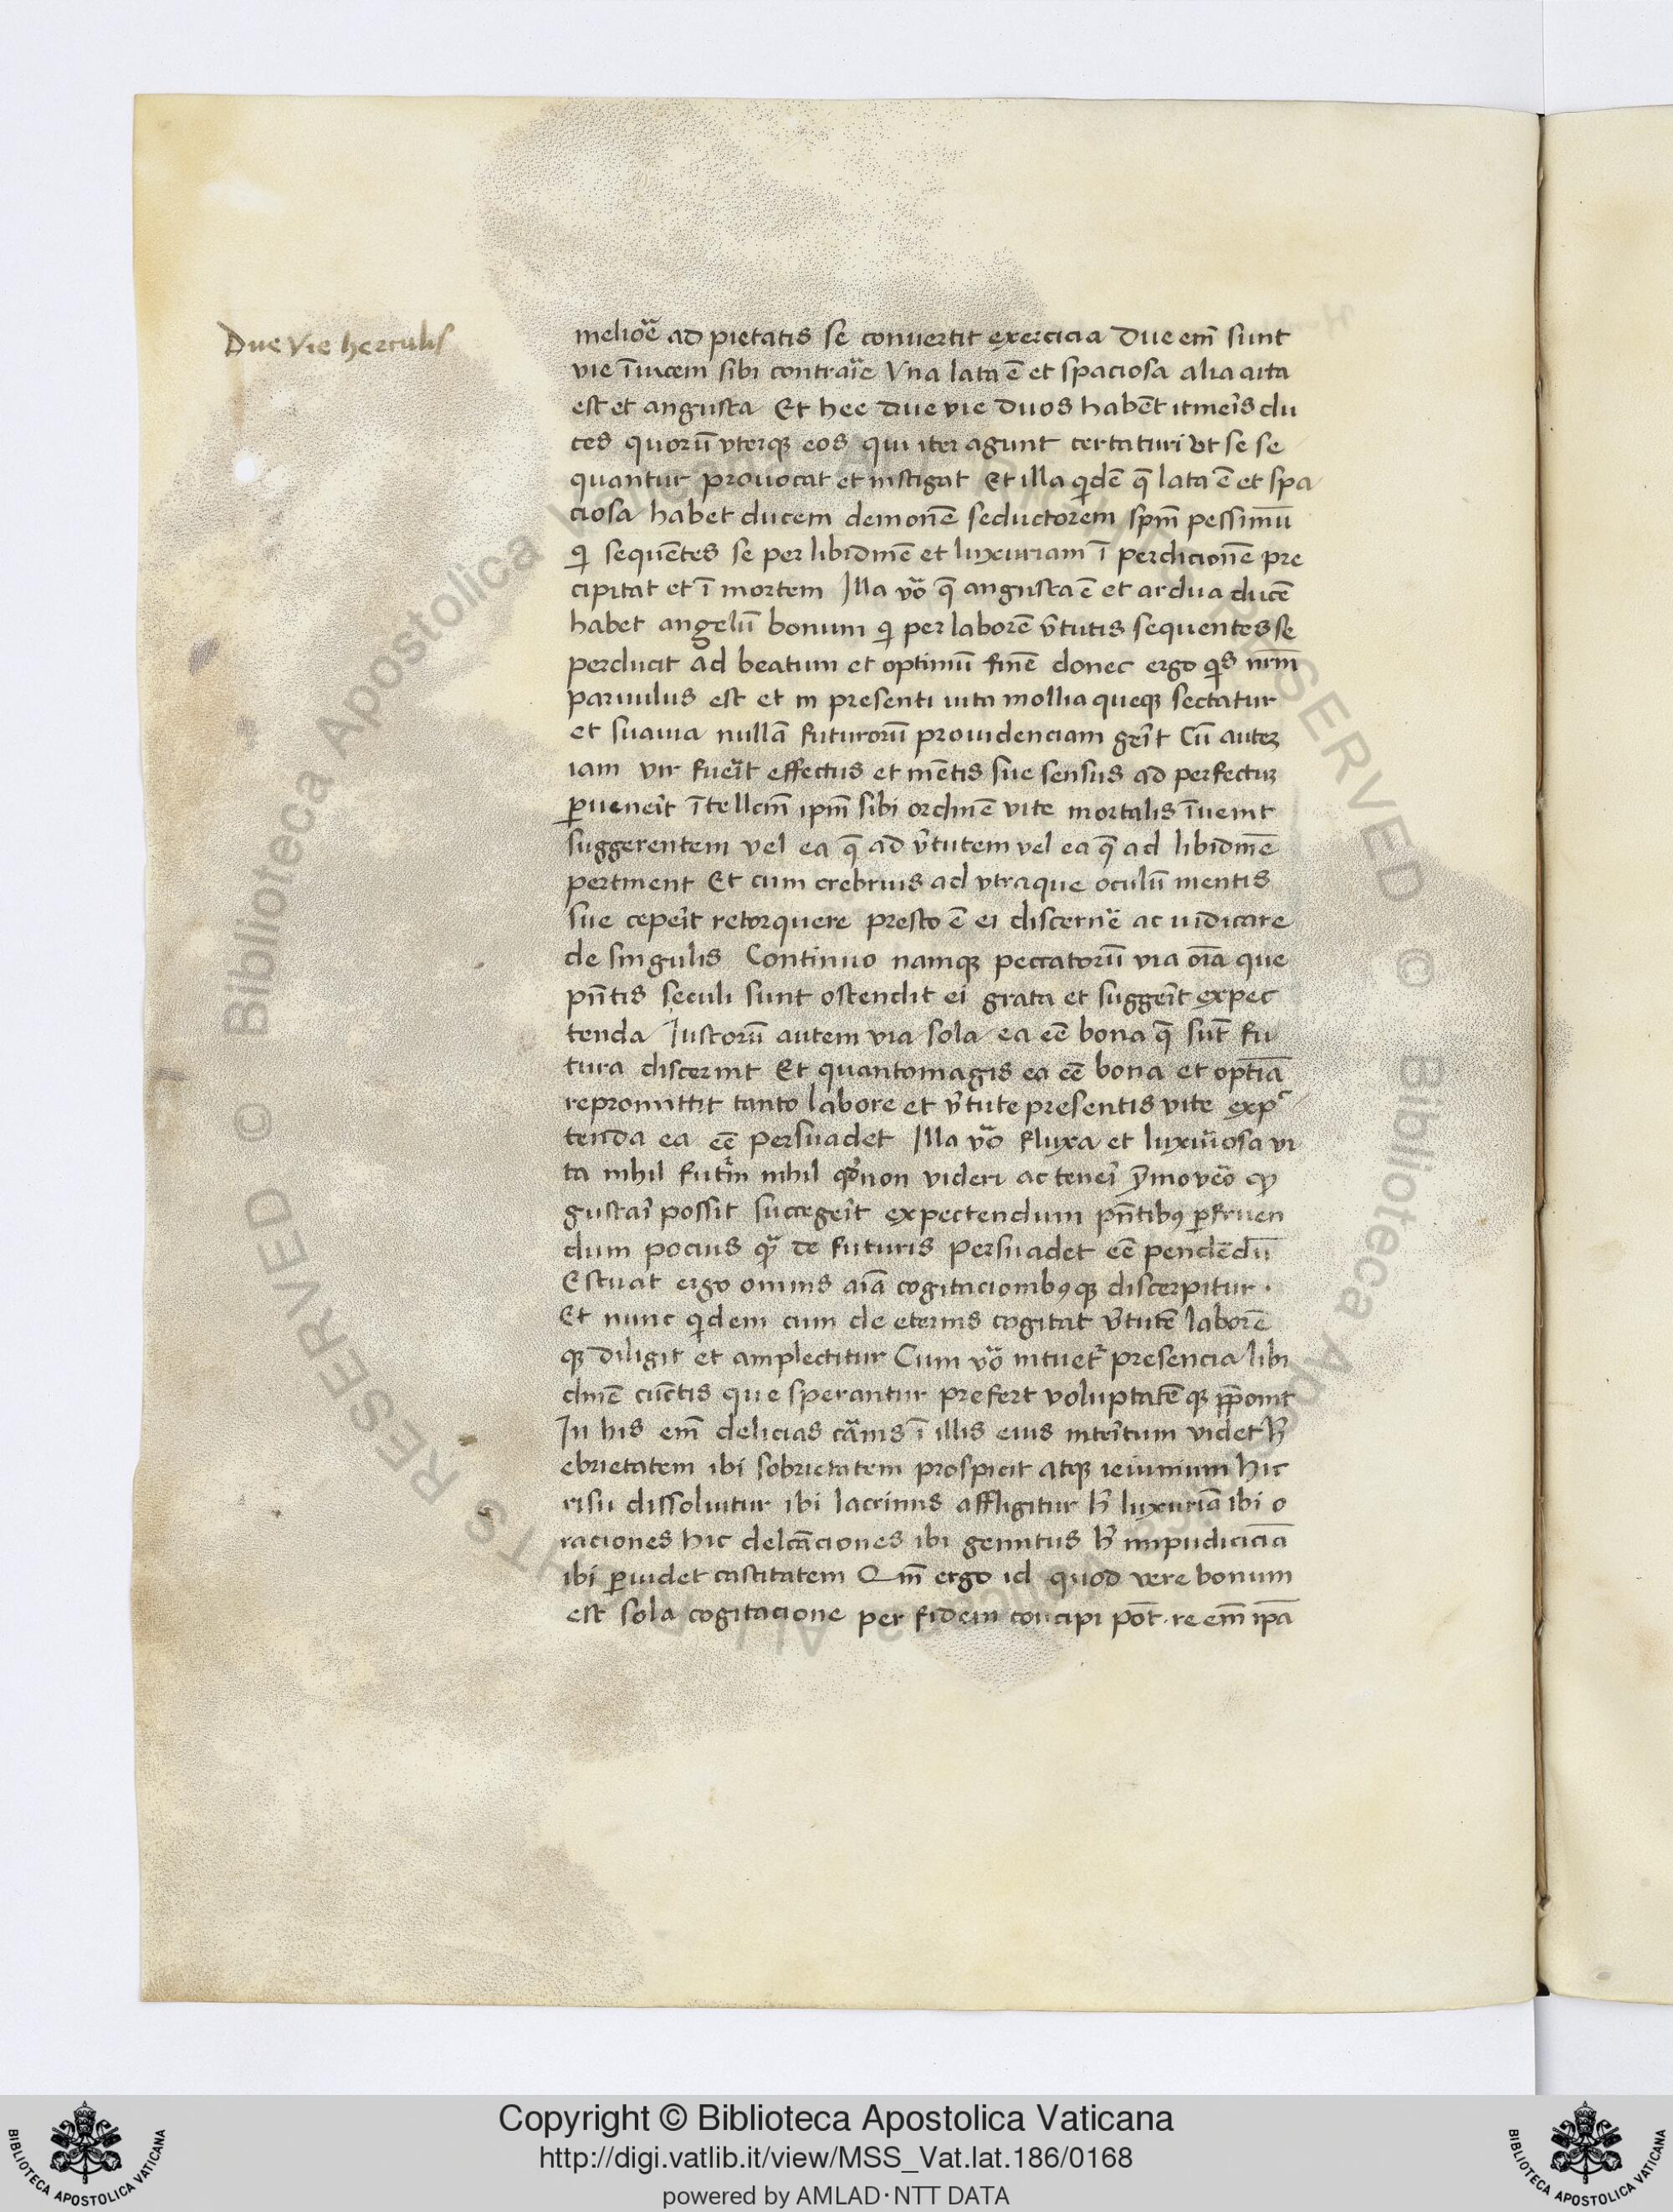 Due Vie herculis
melior̃e ad pietatis se conuertit exercicia Due em̃ sunt
vie ĩuicem sibi contrar̃ie Vna lata ẽ et spaciosa alia arta
est et angusta Et hee due vie duos habẽt itiner̃is du
ces quorũ vterqꝫ eos qui iter agunt certaturi vt se se
quantur prouocat et instigat Et illa qidẽ q̃ lata ẽ et spa
ciosa habet ducem demonẽ seductorem sp̃m pessimũ
qi sequẽtes se per libidinẽ et luxuriam ĩ perdicionẽ pre
cipitat et ĩ mortem Illa võ q̃ angusta ẽ et ardua ducẽ
habet angelũ bonum qi per laborẽ ṽtutis sequentes se
perducit ad beatum et optimũ finẽ donec ergo qis nr̃m
paruulus est et in presenti uita mollia queqꝫ sectatur
et suauia nullã futurorũ prouidenciam ger̃it Cũ autez
iam vir fuer̃it effectus et mẽtis sue sensus ad perfectuz
ꝑuener̃it ĩtellcm̃ ip̃m sibi ordinẽ vite mortalis ĩuenit
suggerentem vel ea q̃ ad ṽtutem vel ea q̃ ad libidinẽ
pertinent Et cum crebrius ad vtraque oculũ mentis
sue ceper̃it retorquere presto ẽ ei discerner̃e ac iudicare
de singulis Continuo namqꝫ peccatorũ via oĩa que
pñtis seculi sunt ostendit ei grata et sugger̃it expec
tenda Iustorũ autem via sola ea eẽ bona q̃ sũt fu
tura discernit Et quantomagis ea eẽ bona et optĩa
repromittit tanto labore et ṽtute presentis vite expᶜ
tenda ea eẽ persuadet Illa võ fluxa et luxuriosa vi
ta nihil futur̃m nihil qd̃ non videri ac tener̃i ỹmo verõ qd̃
gustar̃i possit succeger̃it expectendum pñtibꝰ ꝑfruen
dum pocius q̃ de futuris persuadet eẽ pendẽdũ
Estuat ergo omnis aĩa cogitacionibꝰqꝫ discerpitur ·
Et nunc qidem cum de eternis cogitat ṽtutẽ laborẽ
qꝫ diligit et amplectitur Cum võ intuet̃ presencia libi
dinẽ cũctis que sperantur prefert voluptatẽqꝫ p̃ponit
In his em̃ delicias car̃nis ĩ illis eius inter̃itum videt h̃
ebrietatem ibi sobrietatem prospicit atqꝫ ieiunium hic
risu dissoluitur ibi lacrimis affligitur h̃ luxuriã ibi o
raciones hic delcãciones ibi gemitus h̃ impudiciciã
ibi ꝑuidet castitatem Qm̃ ergo id quod vere bonum
est sola cogitacione per fidem concipi põt · re em̃ ipã
© Biblioteca Apostolica Vaticana ALL RIGHTS RESERVED
Copyright © Biblioteca Apostolica Vaticana
http://digi.vatlib.it/view/MSS_Vat.lat.186/0168
powered by AMLAD·NTT DATA
BIBLIOTECA APOSTOLICA VATICANA
BIBLIOTECA APOSTOLICA VATICANA